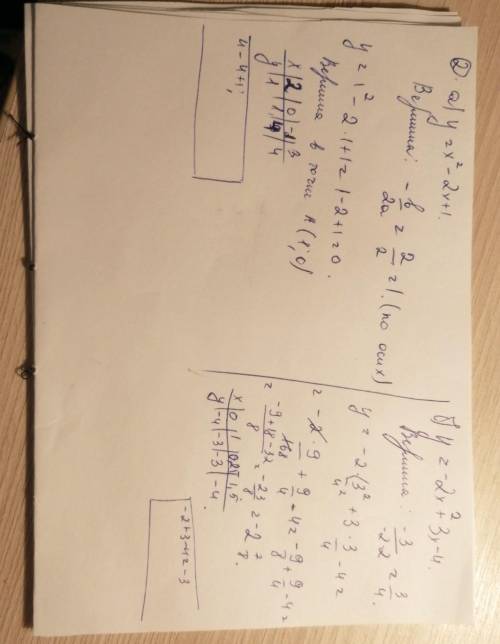 ②. а) y = x² - 2x + 1.
Вершина: -b/2a = 2/2 = 1. (по оси x)
y = 1² - 2·1 + 1 = 1 - 2 + 1 = 0.
Вершина в точке A (1; 0)
x | 2 | 0 | -1 | 3
y | 1 | 1 | 4 | 4
4 - 4 + 1;
б) y = -2x² + 3x - 4.
Вершина: -3/-2·2 = 3/4.
y = -2·(3/4)² + 3·3/4 - 4 =
= -2·9/16 + 9/4 - 4 = -9/8 + 9/4 - 4 =
= -9+18-32/8 = -23/8 = -2 7/8.
x | 0 | 1 | 0,5 | 1,5
y | -4 | -3 | -3 | -4.
-2+3-4=-3